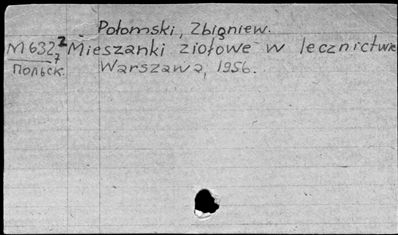 Połomski, Zbigniew.
М632 2/7 Mieszanki ziołowe w lecznictwie
Польск. Warszawa, 1956.